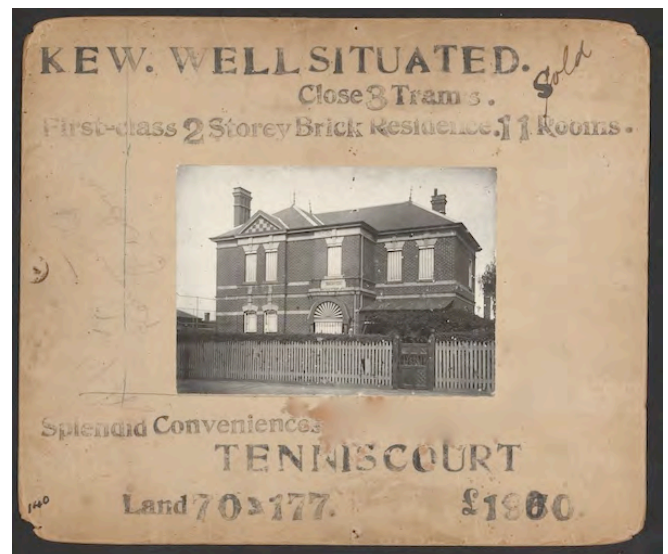 KEW. WELL SITUATED.
Sold
Close 3 Trams.
First-class 2 Storey Brick Residence. 11 Rooms.
Splendid Conveniences
TENNISCOURT
Land 70 x 177.
140